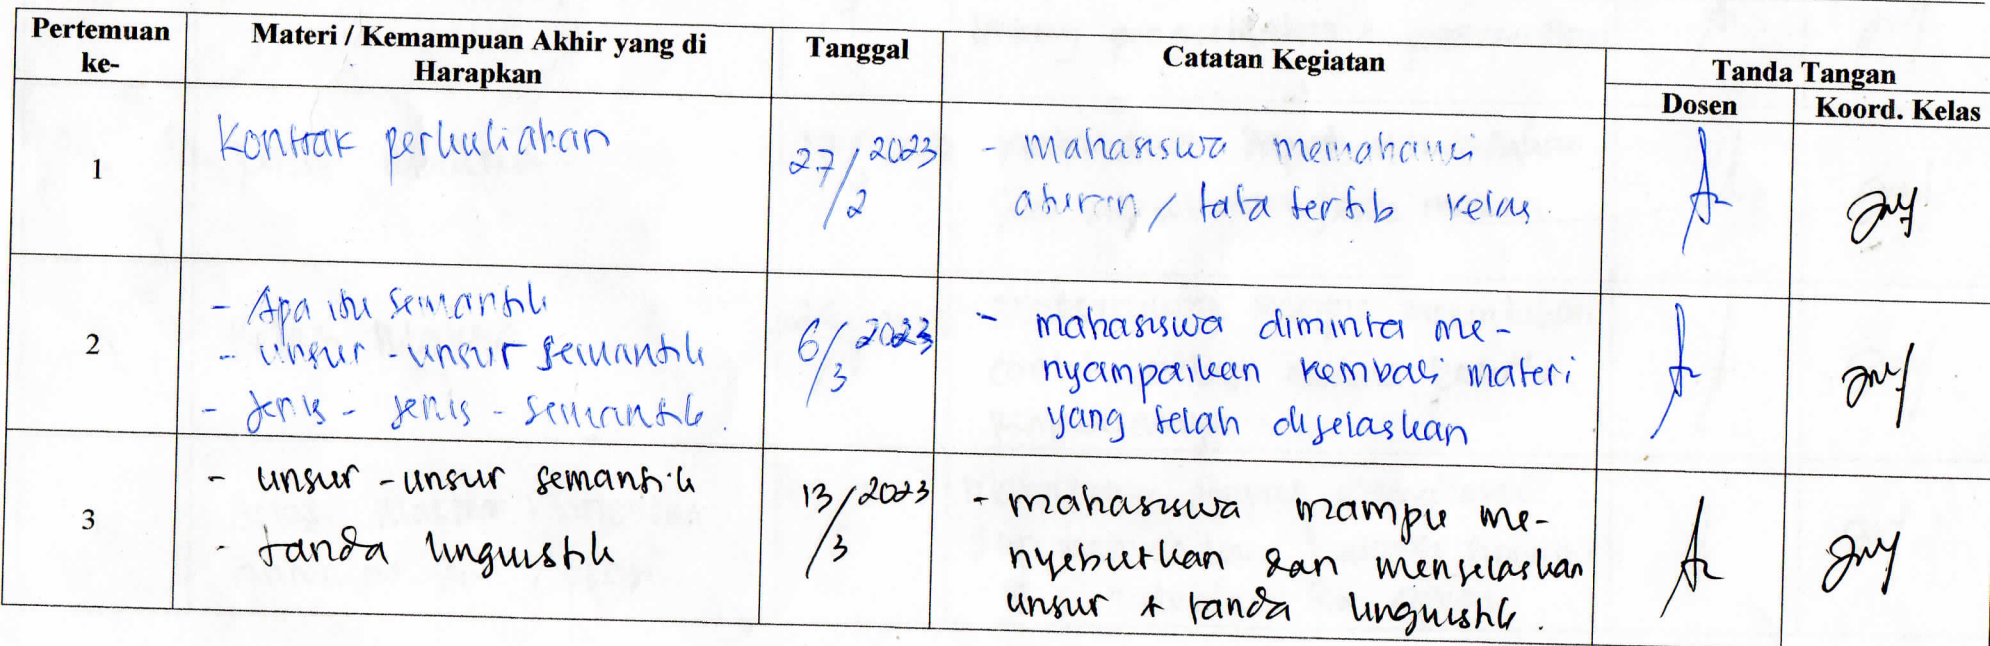 Pertemuan ke-
Materi / Kemampuan Akhir yang di Harapkan
Tanggal
Catatan Kegiatan
Tanda Tangan
Dosen
Koord. Kelas
1
Kontrak perkuliahan
27/2 2023
- Mahasiswa memahami
aturan / tata tertib kelas.
2
- Apa itu semantik
- unsur - unsur semantik
- Jenis - jenis - semantik.
6/3 2023
- mahasiswa diminta me-
nyampaikan kembali materi
yang telah dijelaskan
3
- unsur - unsur semantik
- tanda linguistik
13/3 2023
- mahasiswa mampu me-
nyebutkan dan menjelaskan
unsur & tanda linguistik.